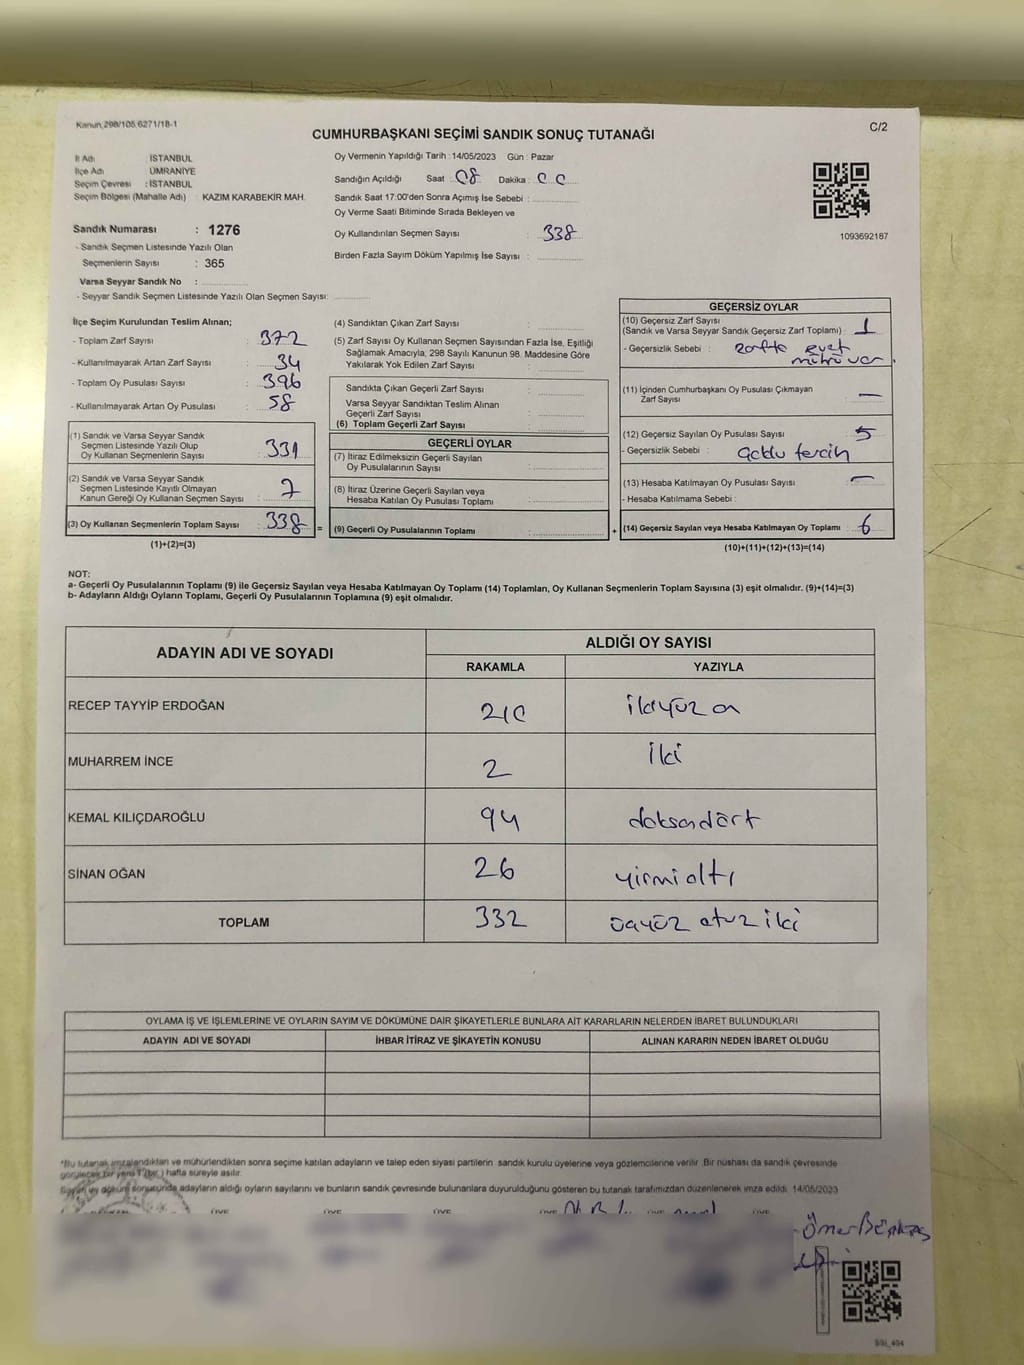 Kanun,298/105,6271/18-1
CUMHURBAŞKANI SEÇİMİ SANDIK SONUÇ TUTANAĞI
C/2
İl Adı : İSTANBUL
İlçe Adı : ÜMRANİYE
Seçim Çevresi : İSTANBUL
Seçim Bölgesi (Mahalle Adı) : KAZIM KARABEKİR MAH.
Sandık Numarası : 1276
- Sandık Seçmen Listesinde Yazılı Olan
Seçmenlerin Sayısı : 365
Varsa Seyyar Sandık No :
- Seyyar Sandık Seçmen Listesinde Yazılı Olan Seçmen Sayısı:
Oy Vermenin Yapıldığı Tarih : 14/05/2023 Gün : Pazar
Sandığın Açıldığı Saat : 08 Dakika : 00
Sandık Saat 17:00'den Sonra Açımış İse Sebebi :
Oy Verme Saati Bitiminde Sırada Bekleyen ve
Oy Kullandırılan Seçmen Sayısı : 338
Birden Fazla Sayım Döküm Yapılmış İse Sayısı :
1093692187
İlçe Seçim Kurulundan Teslim Alınan;
- Toplam Zarf Sayısı : 372
- Kullanılmayarak Artan Zarf Sayısı : 34
- Toplam Oy Pusulası Sayısı : 396
- Kullanılmayarak Artan Oy Pusulası : 58
(1) Sandık ve Varsa Seyyar Sandık
Seçmen Listesinde Yazılı Olup
Oy Kullanan Seçmenlerin Sayısı : 331
(2) Sandık ve Varsa Seyyar Sandık
Seçmen Listesinde Kayıtlı Olmayan
Kanun Gereği Oy Kullanan Seçmen Sayısı : 7
(3) Oy Kullanan Seçmenlerin Toplam Sayısı : 338 =
(1)+(2)=(3)
(4) Sandıktan Çıkan Zarf Sayısı :
(5) Zarf Sayısı Oy Kullanan Seçmen Sayısından Fazla İse, Eşitliği
Sağlamak Amacıyla, 298 Sayılı Kanunun 98. Maddesine Göre
Yakılarak Yok Edilen Zarf Sayısı :
Sandıkta Çıkan Geçerli Zarf Sayısı :
Varsa Seyyar Sandıktan Teslim Alınan
Geçerli Zarf Sayısı :
(6) Toplam Geçerli Zarf Sayısı :
GEÇERLİ OYLAR
(7) İtiraz Edilmeksizin Geçerli Sayılan
Oy Pusulalarının Sayısı :
(8) İtiraz Üzerine Geçerli Sayılan veya
Hesaba Katılan Oy Pusulası Toplamı :
(9) Geçerli Oy Pusulalarının Toplamı : +
GEÇERSİZ OYLAR
(10) Geçersiz Zarf Sayısı
(Sandık ve Varsa Seyyar Sandık Geçersiz Zarf Toplamı) : 1
- Geçersizlik Sebebi : zarfta evet
mührü var.
(11) İçinden Cumhurbaşkanı Oy Pusulası Çıkmayan
Zarf Sayısı : —
(12) Geçersiz Sayılan Oy Pusulası Sayısı : 5
- Geçersizlik Sebebi : çoklu tercih
(13) Hesaba Katılmayan Oy Pusulası Sayısı : —
- Hesaba Katılmama Sebebi :
(14) Geçersiz Sayılan veya Hesaba Katılmayan Oy Toplamı : 6
(10)+(11)+(12)+(13)=(14)
NOT:
a- Geçerli Oy Pusulalarının Toplamı (9) ile Geçersiz Sayılan veya Hesaba Katılmayan Oy Toplamı (14) Toplamları, Oy Kullanan Seçmenlerin Toplam Sayısına (3) eşit olmalıdır. (9)+(14)=(3)
b- Adayların Aldığı Oyların Toplamı, Geçerli Oy Pusulalarının Toplamına (9) eşit olmalıdır.
ADAYIN ADI VE SOYADI
ALDIĞI OY SAYISI
RAKAMLA YAZIYLA
RECEP TAYYİP ERDOĞAN 210 ikiyüz on
MUHARREM İNCE 2 iki
KEMAL KILIÇDAROĞLU 94 doksandört
SİNAN OĞAN 26 yirmialtı
TOPLAM 332 üçyüz otuz iki
OYLAMA İŞ VE İŞLEMLERİNE VE OYLARIN SAYIM VE DÖKÜMÜNE DAİR ŞİKAYETLERLE BUNLARA AİT KARARLARIN NELERDEN İBARET BULUNDUKLARI
ADAYIN ADI VE SOYADI İHBAR İTİRAZ VE ŞİKAYETİN KONUSU ALINAN KARARIN NEDEN İBARET OLDUĞU
"Bu tutanak imzalandıktan ve mühürlendikten sonra seçime katılan adayların ve talep eden siyasi partilerin sandık kurulu üyelerine veya gözlemcilerine verilir. Bir nüshası da sandık çevresinde
görülecek bir yere 1 (bir) hafta süreyle asılır.
Sayım ve döküm sonucunda adayların aldığı oyların sayılarını ve bunların sandık çevresinde bulunanlara duyurulduğunu gösteren bu tutanak tarafımızdan düzenlenerek imza edildi. 14/05/2023
ÜYE ÜYE ÜYE ÜYE ÜYE ÜYE
Ömer